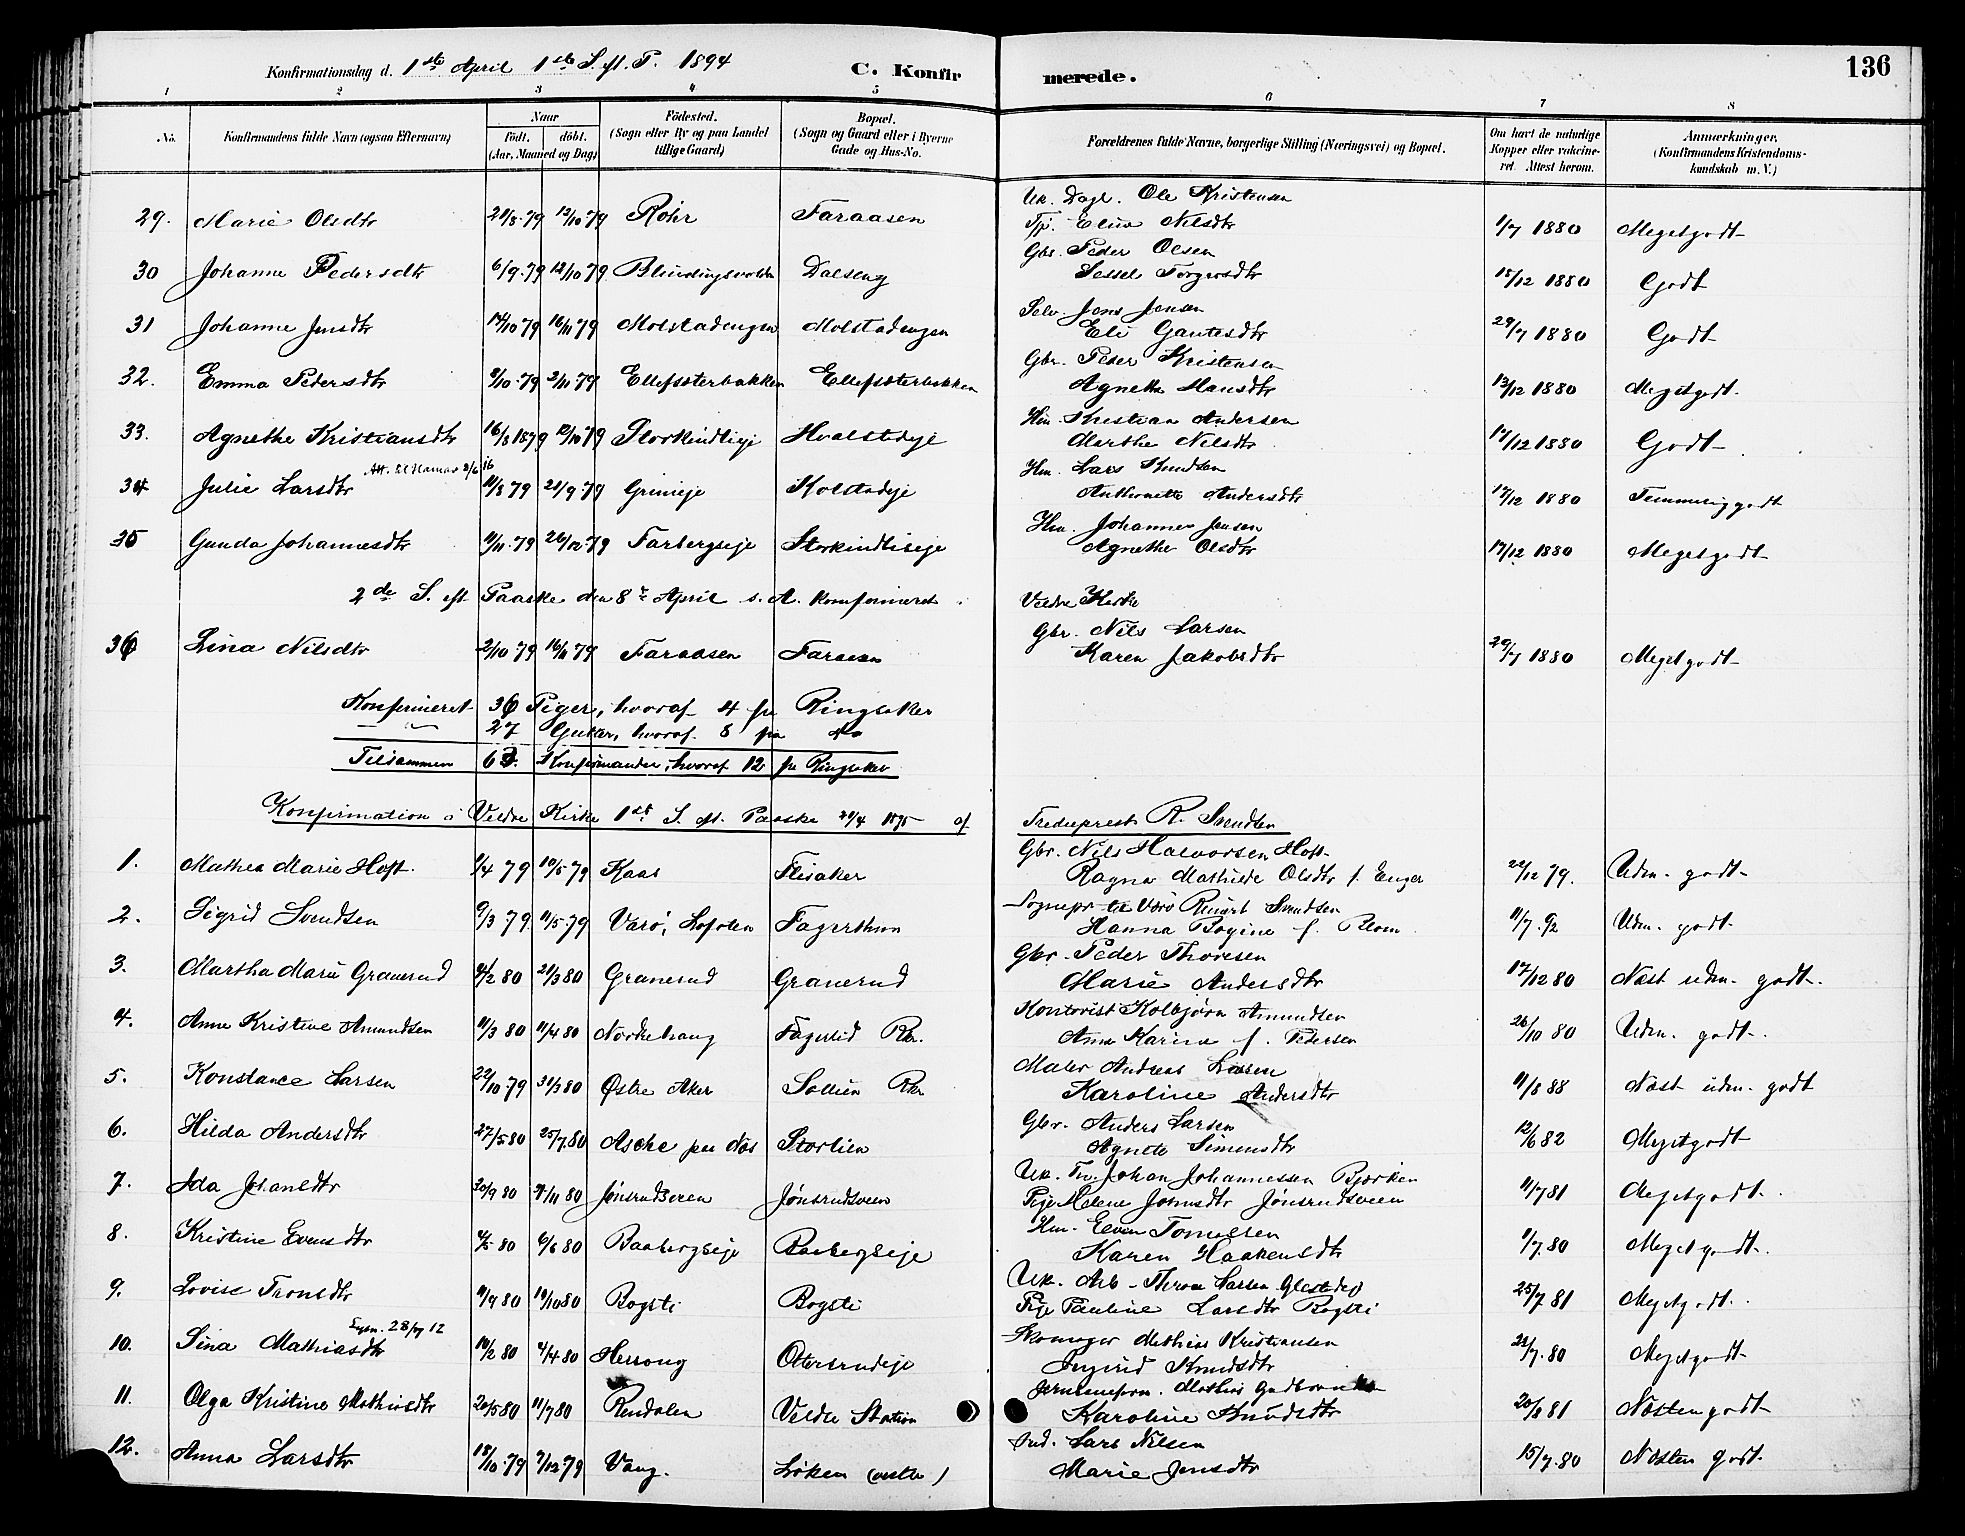 Konfirmationsdag d. 1ste April 1ste S. eft. P. 1894 C. Konfirmerede. 136
1 2 3 4 5 6 7 8
No. Konfirmandens fulde Navn (ogsaa Efternavn) Naar Födt. döbt. (Aar, Maaned og Dag) Födested. (Sogn eller By og paa Landet tillige Gaard) Bopæl. (Sogn og Gaard eller i Byerne Gade og Hus-No. Forældrenes fulde Navne, borgerlige Stilling (Næringsvei) og Bopæl. Om havt de naturlige Kopper eller vakcineret. Attest herom. Anmærkninger, (Konfirmandens Kristendomskundskab m. V.)
29. Marie Olsdtr 12/10 79 Rohr Faraasen Uk. Dagl. Ole Kristensen
Tjp. Nilsdtr 1/7 1880 Megetgodt
30 Johanne Pedersdtr 6/9 79 12/10 79 Dalseng Gbr. Peder Olsen
Sessel Torgersdtr 15/12 1880 Godt
31 Johanne Jensdtr 14/10 79 16/11 79 Molstadengen Molstadengen Selv. Jens Jensen
Eli Gautesdtr 29/7 1880 Godt
32. Emma Pedersdtr 9/10 79 2/11 79 Ellefsæterbakken Ellefsæterbakken Gbr. Peder Kristensen
Agnethe Hansdtr 13/12 1880 Megetgodt.
33. Agnethe Kristiansdtr 16/8 1879 12/10 79 Storkindlieje Hvalstadeje Hm. Kristian Andersen
Marthe Nilsdtr 17/12 1880 Godt
34 Julie Larsdtr Att. til Hamar 2/6 16 11/8 79 21/9 79 Grimeje Kolstadeje Hm. Lars Knudsen
Anthonette Andersdtr 17/12 1880 Temmeliggodt
35 Gunda Johannesdtr 11/11 79 26/12 79 Farbergseje Storkindlieeje Hm. Johannes Jensen
Agnethe Olsdtr 17/12 1880 Megetgodt
2de S. eft. Paaske den 8de April s. A. konfirmeret i Veldre Kirke
36 Lina Nilsdtr 2/10 79 16/11 79 Faraasen Faraasen Gbr. Nils Larsen
Karen Jakobsdtr 29/7 1880 Megetgodt
Konfirmeret 36 Piger, hvoraf 4 fra Ringsaker
27 Gutter, hvoraf 8 fra do
Tilsammen 63. Konfirmander, hvoraf 12 fra Ringsaker
Konfirmation i Veldre Kirke 1ste S. eft. Paaske 21/4 1895 af Stedenprest R. Svendsen
1. Mathea Marie Hoft. 1/4 79 10/5 79 Kaas Flisaker Gbr. Nils Halvorsen Hoft
Ragna Mathilde Olsdtr f. Enger 22/12 79. Udm. godt
2. Sigrid Svendsen 9/3 79 11/5 79 Værö, Lofoten Fagerthun Sognepr. til Værö Svendsen
Hanna Bogine f. Blom Udm. godt
3. Martha Marie Granerud 21/3 80 Granerud Granerud Gbr. Peder Thoresen
Marie Andersdtr 17/12 80 Næst udm. godt.
4. Anne Kristine Amundsen 11/3 80 11/4 80 Norkehaug Fagerlid Rkr. Kontorist Kolbjørn Amundsen
Anna Karine f. Pedersen 26/10 80 Udm. godt.
5. Konstance Larsen 22/10 79 31/3 80 Østre Aker Sollien Rkr Maler Andreas Larsen
Karoline Andersdtr 11/8 88 Næst udm. godt
6. Hilda Andersdtr 27/5 80 25/7 80 Aske paa Næs Storlien Gbr. Anders Larsen
Agnete Simensdtr 12/6 82 Megetgodt
7. Ida Johansdtr 20/9 80 Jønsrudveen Jønsrudsveen Uk. Johan Johannessen Bjørken
Pige Helene Jønsrudsveen 11/7 81 Megetgodt.
8. Kristine Evensdtr 6/6 80 Baabergseje Baabergseje Hm. Even Tomelsen
Karen Haakensdtr 9/7 80 Megetgodt.
9. Lovise Tronsdtr 11/9 80 Bogsti Bogsti Uk. Arb. Thron Larsen
Pige Pauline Larsdtr Bogsti 25/7 81 Megetgodt.
10. Sina Mathiasdtr 28/7 12 4/4 80 Otersrudeje Skomager Mathias Kristiansen
Ingrid Knudsdtr Megetgodt
11. Olga Kristine Mathisdtr 20/5 80 11/7 80 Rendalen Veldre Station Mathias
Karoline Knudsdtr 20/8 81 Næstengodt
12. Anna Larsdtr 18/10 79 7/12 79 Vang. Løken (vestre) Ind. Lars Nilsen
Marie Jensdtr 15/7 80 Næsten godt